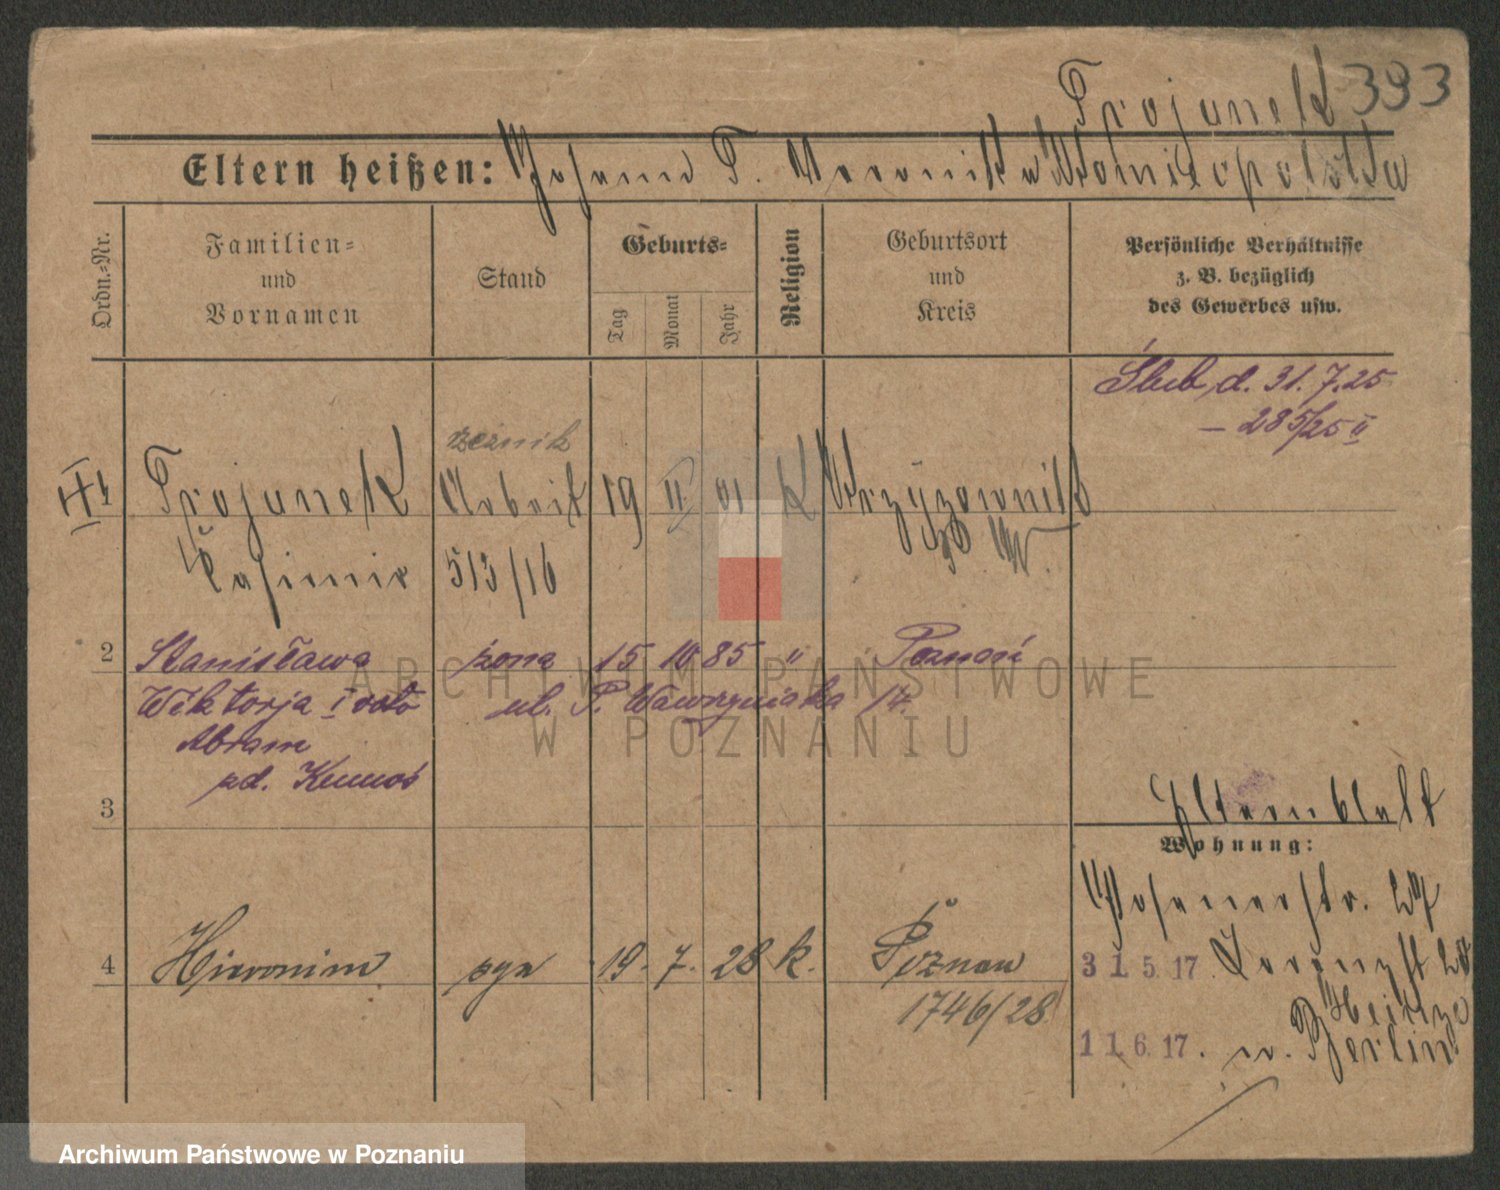 Trojanek 393
Eltern heißen: Johann T. Veronika
Ordn.=Nr.
Familien=
und
Vornamen
Stand
Geburts=
Tag
Monat
Jahr
Religion
Geburtsort
und
Kreis
Persönliche Verhältnisse
z. B. bezüglich
des Gewerbes usw.
Ślub d. 31. 7. 25
– 285/25 II
rzeźnik
1 Trojanek Arbeit 19 II 01 K
Casimir 513/16
2 Stanisława żona 15 10 85 " Poznań
Wiktorja I voto ul. P. Wawrzyniaka 14.
Abram
zd.
3
Elternblatt
Wohnung:
Posenerstr.
4 Hieronim syn 19. 7. 28 k. Poznań
1746/28
31.5.17. Lorenzst
Heintze
11.6.17. n. Berlin.
ARCHIWUM PAŃSTWOWE
W POZNANIU
Archiwum Państwowe w Poznaniu